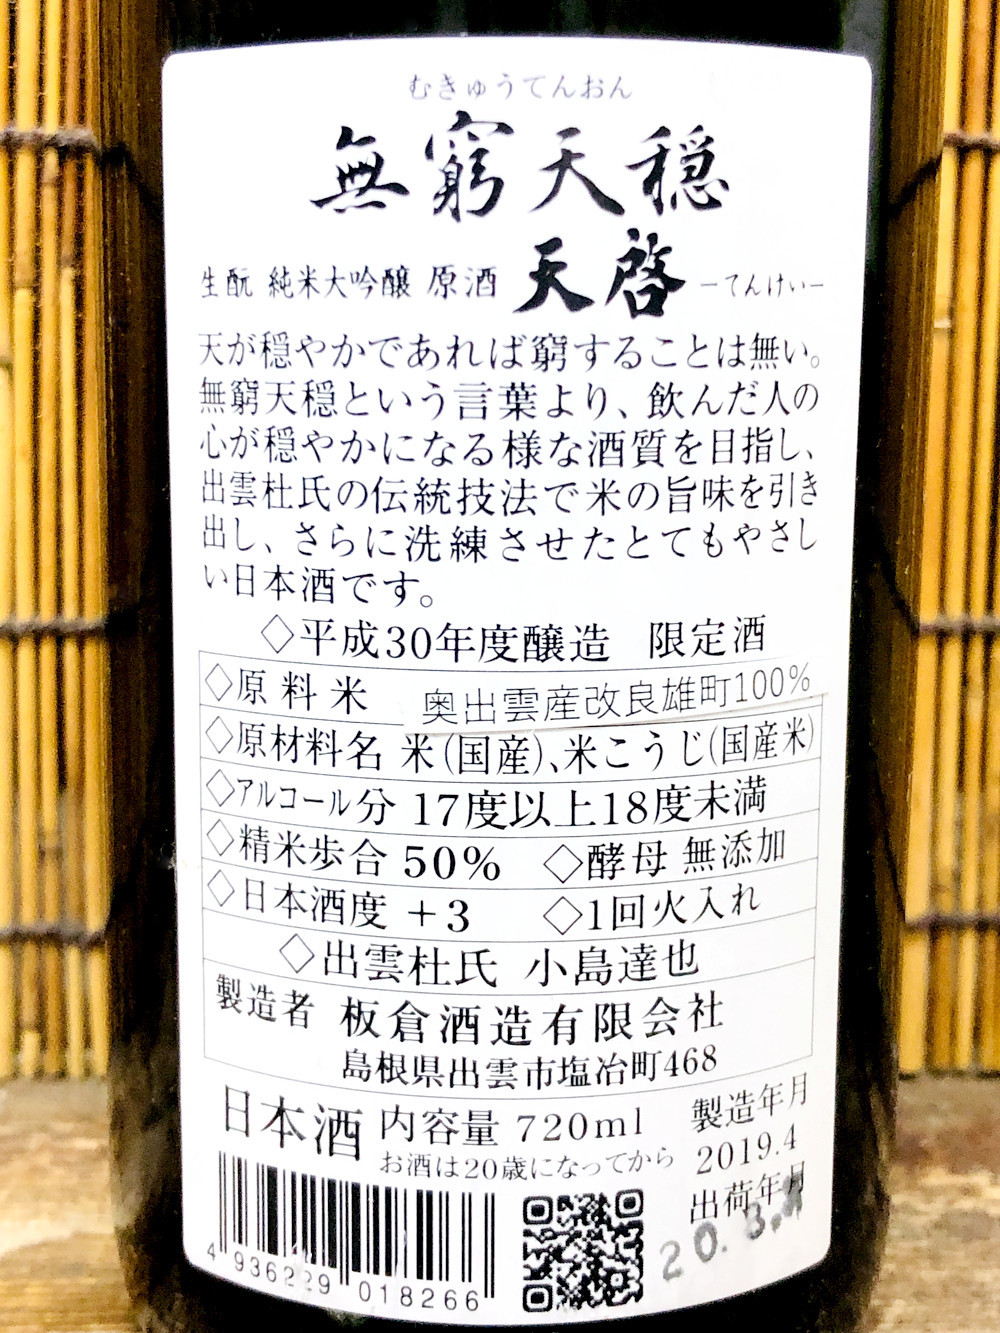 むきゅうてんおん
無窮天穏
生酛 純米大吟醸 原酒 天啓 ーてんけいー
天が穏やかであれば窮することは無い。
無窮天穏という言葉より、飲んだ人の
心が穏やかになる様な酒質を目指し、
出雲杜氏の伝統技法で米の旨味を引き
出し、さらに洗練させたとてもやさし
い日本酒です。
◇平成30年度醸造 限定酒
◇原料米 奥出雲産改良雄町100%
◇原材料名 米(国産)、米こうじ(国産米)
◇アルコール分 17度以上18度未満
◇精米歩合 50% ◇酵母 無添加
◇日本酒度 +3 ◇1回火入れ
◇出雲杜氏 小島達也
製造者 板倉酒造有限会社
島根県出雲市塩冶町468
日本酒 内容量 720ml
お酒は20歳になってから
製造年月
2019.4
出荷年月
20.3.
4 936229 018266